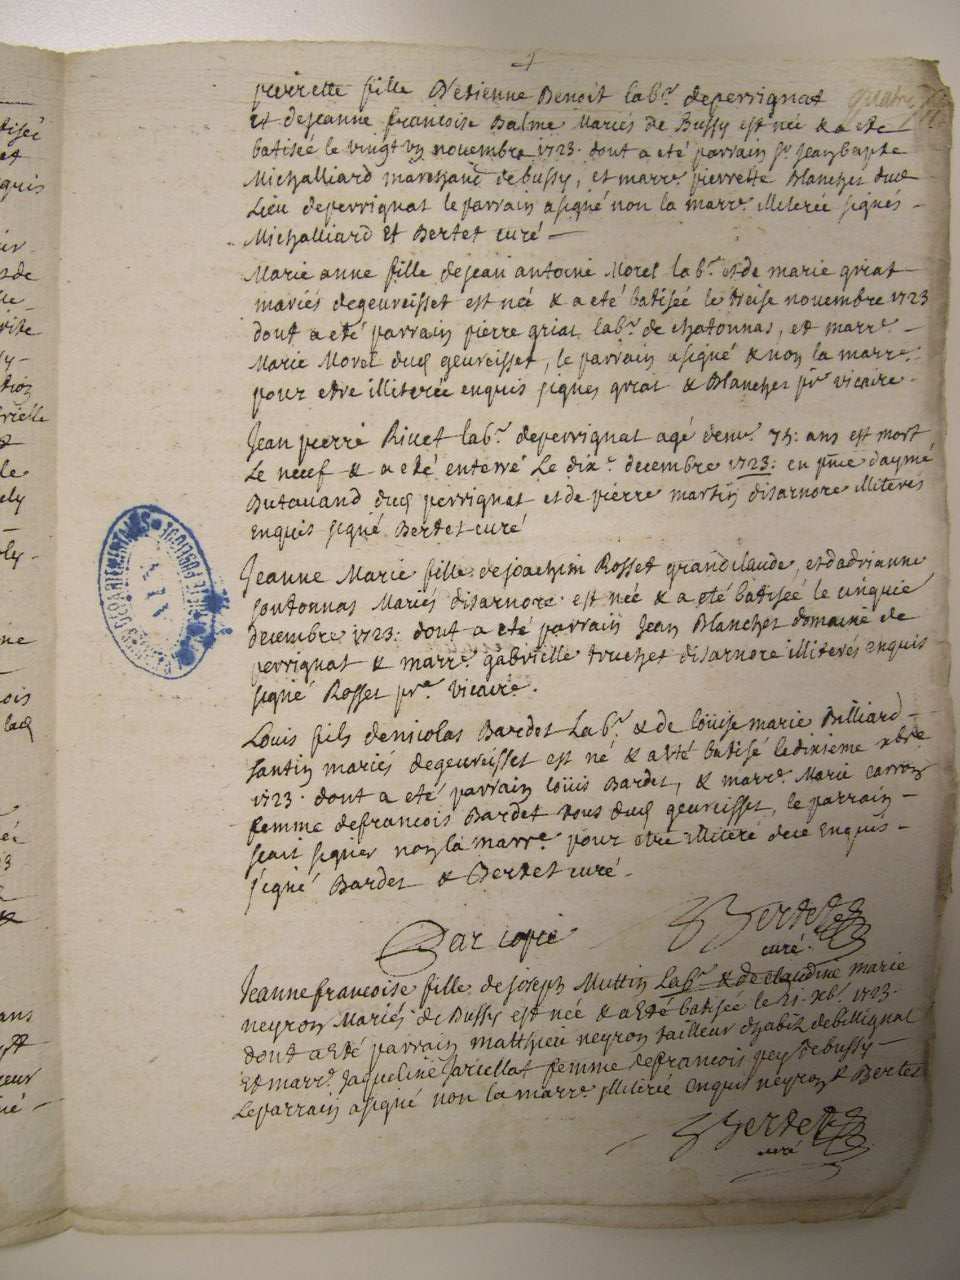 4
pierrette fille D'etienne Benoit labr. deperrignat
Et dejeanne francoise Balme Mariés de Bussy est née & a eté
batisée le vingt un novembre 1723. dont a eté parrain Sr. jean
Michalliard marchand debussy, et marre. pierrette Blanchet dud.
Lieu deperrignat le parrain asigné non la marre. illiterée signés
Michalliard Et Bertet curé
Marie anne fille dejean antoine Morel labr. et de marie griat
mariés degeureisset est née & a eté batisée le treise novembre 1723
dont a eté parrain pierre griat labr. de chatonnas, et marre.
Marie Morel dud. geureisset, le parrain asigné & non la marre.
pour etre illiterée enquis signes griat & Blanchet pre. vicaire.
Jean pierre Rivet labr. deperrignat agé denv. 75: ans est mort
Le neuf & a eté enterré Le dix. decembre 1723: en daymé
Butavand dud. perrignat et de pierre martin disarnore illiterés
enquis signé Bertet curé
Jeanne Marie fille dejoachim Rosset grandclaude, et dadrianne
Mariés disarnore est née & a eté batisée le cinquie
decembre 1723: dont a eté parrain Jean Blanchet domaine de
perrignat & marre. gabrielle truchet disarnore illiterés enquis
signé Rosset pre. vicaire.
Louis fils denicolas Bardet Labr. & de loüise marie Billiard
santin mariés degeureisset est né & a eté batisé ledixieme xbre
1723. dont a eté parrain loüis Bardet, & marre. Marie carron
femme defrancois Bardet tous dud. geureisset, le parrain
scait signer non la marre. pour etre illiteré de ce enquis
signé Bardet & Bertet curé.
Par copie Bertet
curé.
Jeanne francoise fille de joseph Muttin Labr. & de claudine marie
neyron Mariés de Bussy est née & a eté batisée le 21. xbr. 1723.
dont a eté parrain matthieu neyron tailleur dhabit debillignat
Et marre. Jaqueline femme defrancois pey debussy
Le parrain asigné non la marre. illiterée enquis neyron & Bertet
Bertet
curé